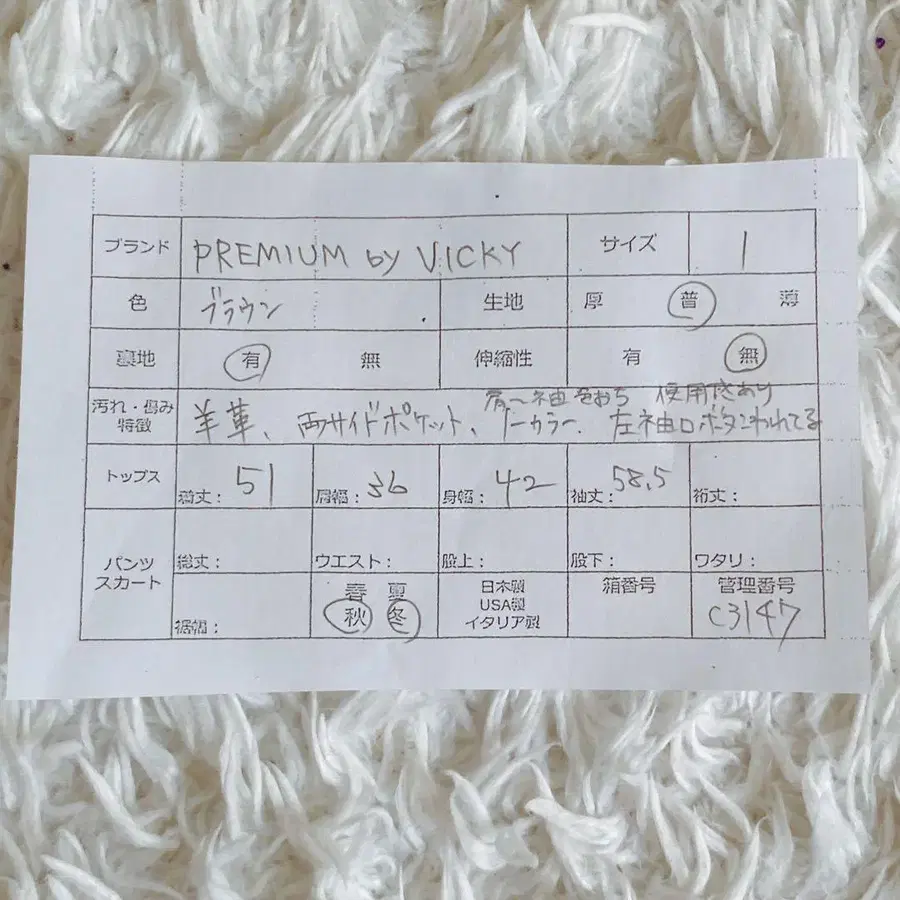 ブランド PREMIUM by VICKY サイズ 1
色 ブラウン 生地 厚 普 薄
裏地 有 無 伸縮性 有 無
肩〜袖色おち 使用感あり
汚れ・傷み
特徴 羊革、両サイドポケット、ノーカラー、左袖口ボタンわれてる
トップス 着丈: 51 肩幅: 36 身幅: 42 袖丈: 58.5 裄丈:
パンツ
スカート
総丈: ウエスト: 股上: 股下: ワタリ:
裾幅:
春 夏
秋 冬
日本製
USA製
イタリア製
箱番号
管理番号
C3147